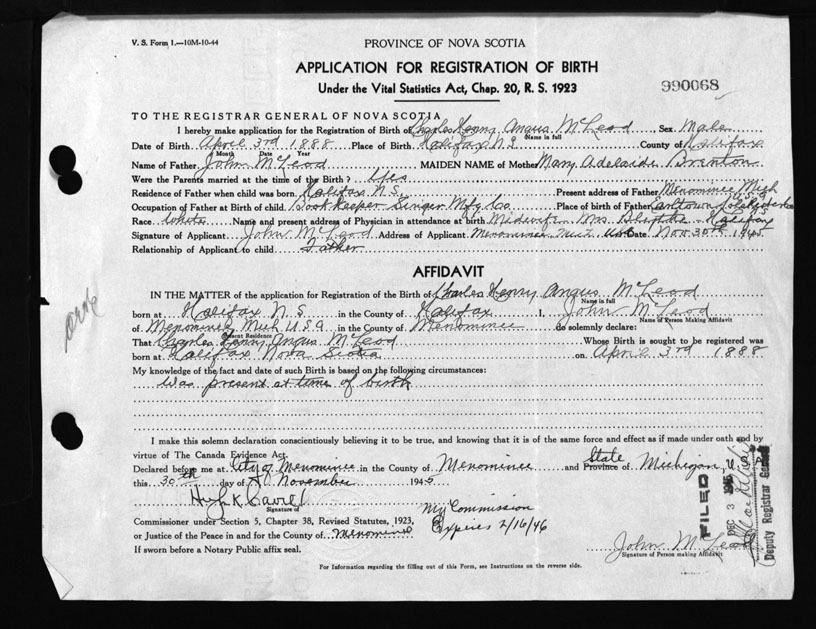 V. S. Form 1.—10M-10-44
PROVINCE OF NOVA SCOTIA
APPLICATION FOR REGISTRATION OF BIRTH
990068
Under the Vital Statistics Act, Chap. 20, R. S. 1923
TO THE REGISTRAR GENERAL OF NOVA SCOTIA
I hereby make application for the Registration of Birth of Charles Henry Angus McLeod, Sex Male
Name in full
Date of Birth April 3rd 1888 Place of Birth Halifax N.S. County of Halifax
Month Date Year
Name of Father John McLeod MAIDEN NAME of Mother Mary Adelaide Brenton
Were the Parents married at the time of the Birth? Yes
Residence of Father when child was born Halifax N.S. Present address of Father Menominee, Mich
Occupation of Father at Birth of child Book Keeper Singer Mfg Co. Place of birth of Father
Race White Name and present address of Physician in attendance at birth Midwife Mrs Halifax N.S.
Signature of Applicant John McLeod Address of Applicant Menominee Mich USA Date Nov 30th 1945
Relationship of Applicant to child Father
AFFIDAVIT
IN THE MATTER of the application for Registration of the Birth of Charles Henry Angus McLeod
Name in full
born at Halifax N S in the County of Halifax I, John McLeod
Name of Person Making Affidavit
of Menominee Mich U.S.A in the County of Menominee do solemnly declare:
Present Residence
That Charles Henry Angus McLeod Whose Birth is sought to be registered was
born at Halifax Nova Scotia on April 3rd 1888
My knowledge of the fact and date of such Birth is based on the following circumstances:
Was present at time of birth
I make this solemn declaration conscientiously believing it to be true, and knowing that it is of the same force and effect as if made under oath and by
virtue of The Canada Evidence Act.
Declared before me at City of Menominee in the County of Menominee and State Province of Michigan, U.S.
this 30th day of November 1945
Signature of
My Commission
Expires 2/16/46
Commissioner under Section 5, Chapter 38, Revised Statutes, 1923,
or Justice of the Peace in and for the County of Menominee
If sworn before a Notary Public affix seal.
John McLeod
Signature of Person making Affidavit
For Information regarding the filling out of this Form, see Instructions on the reverse side.
FILED
DEC 3 1945
Deputy Registrar General